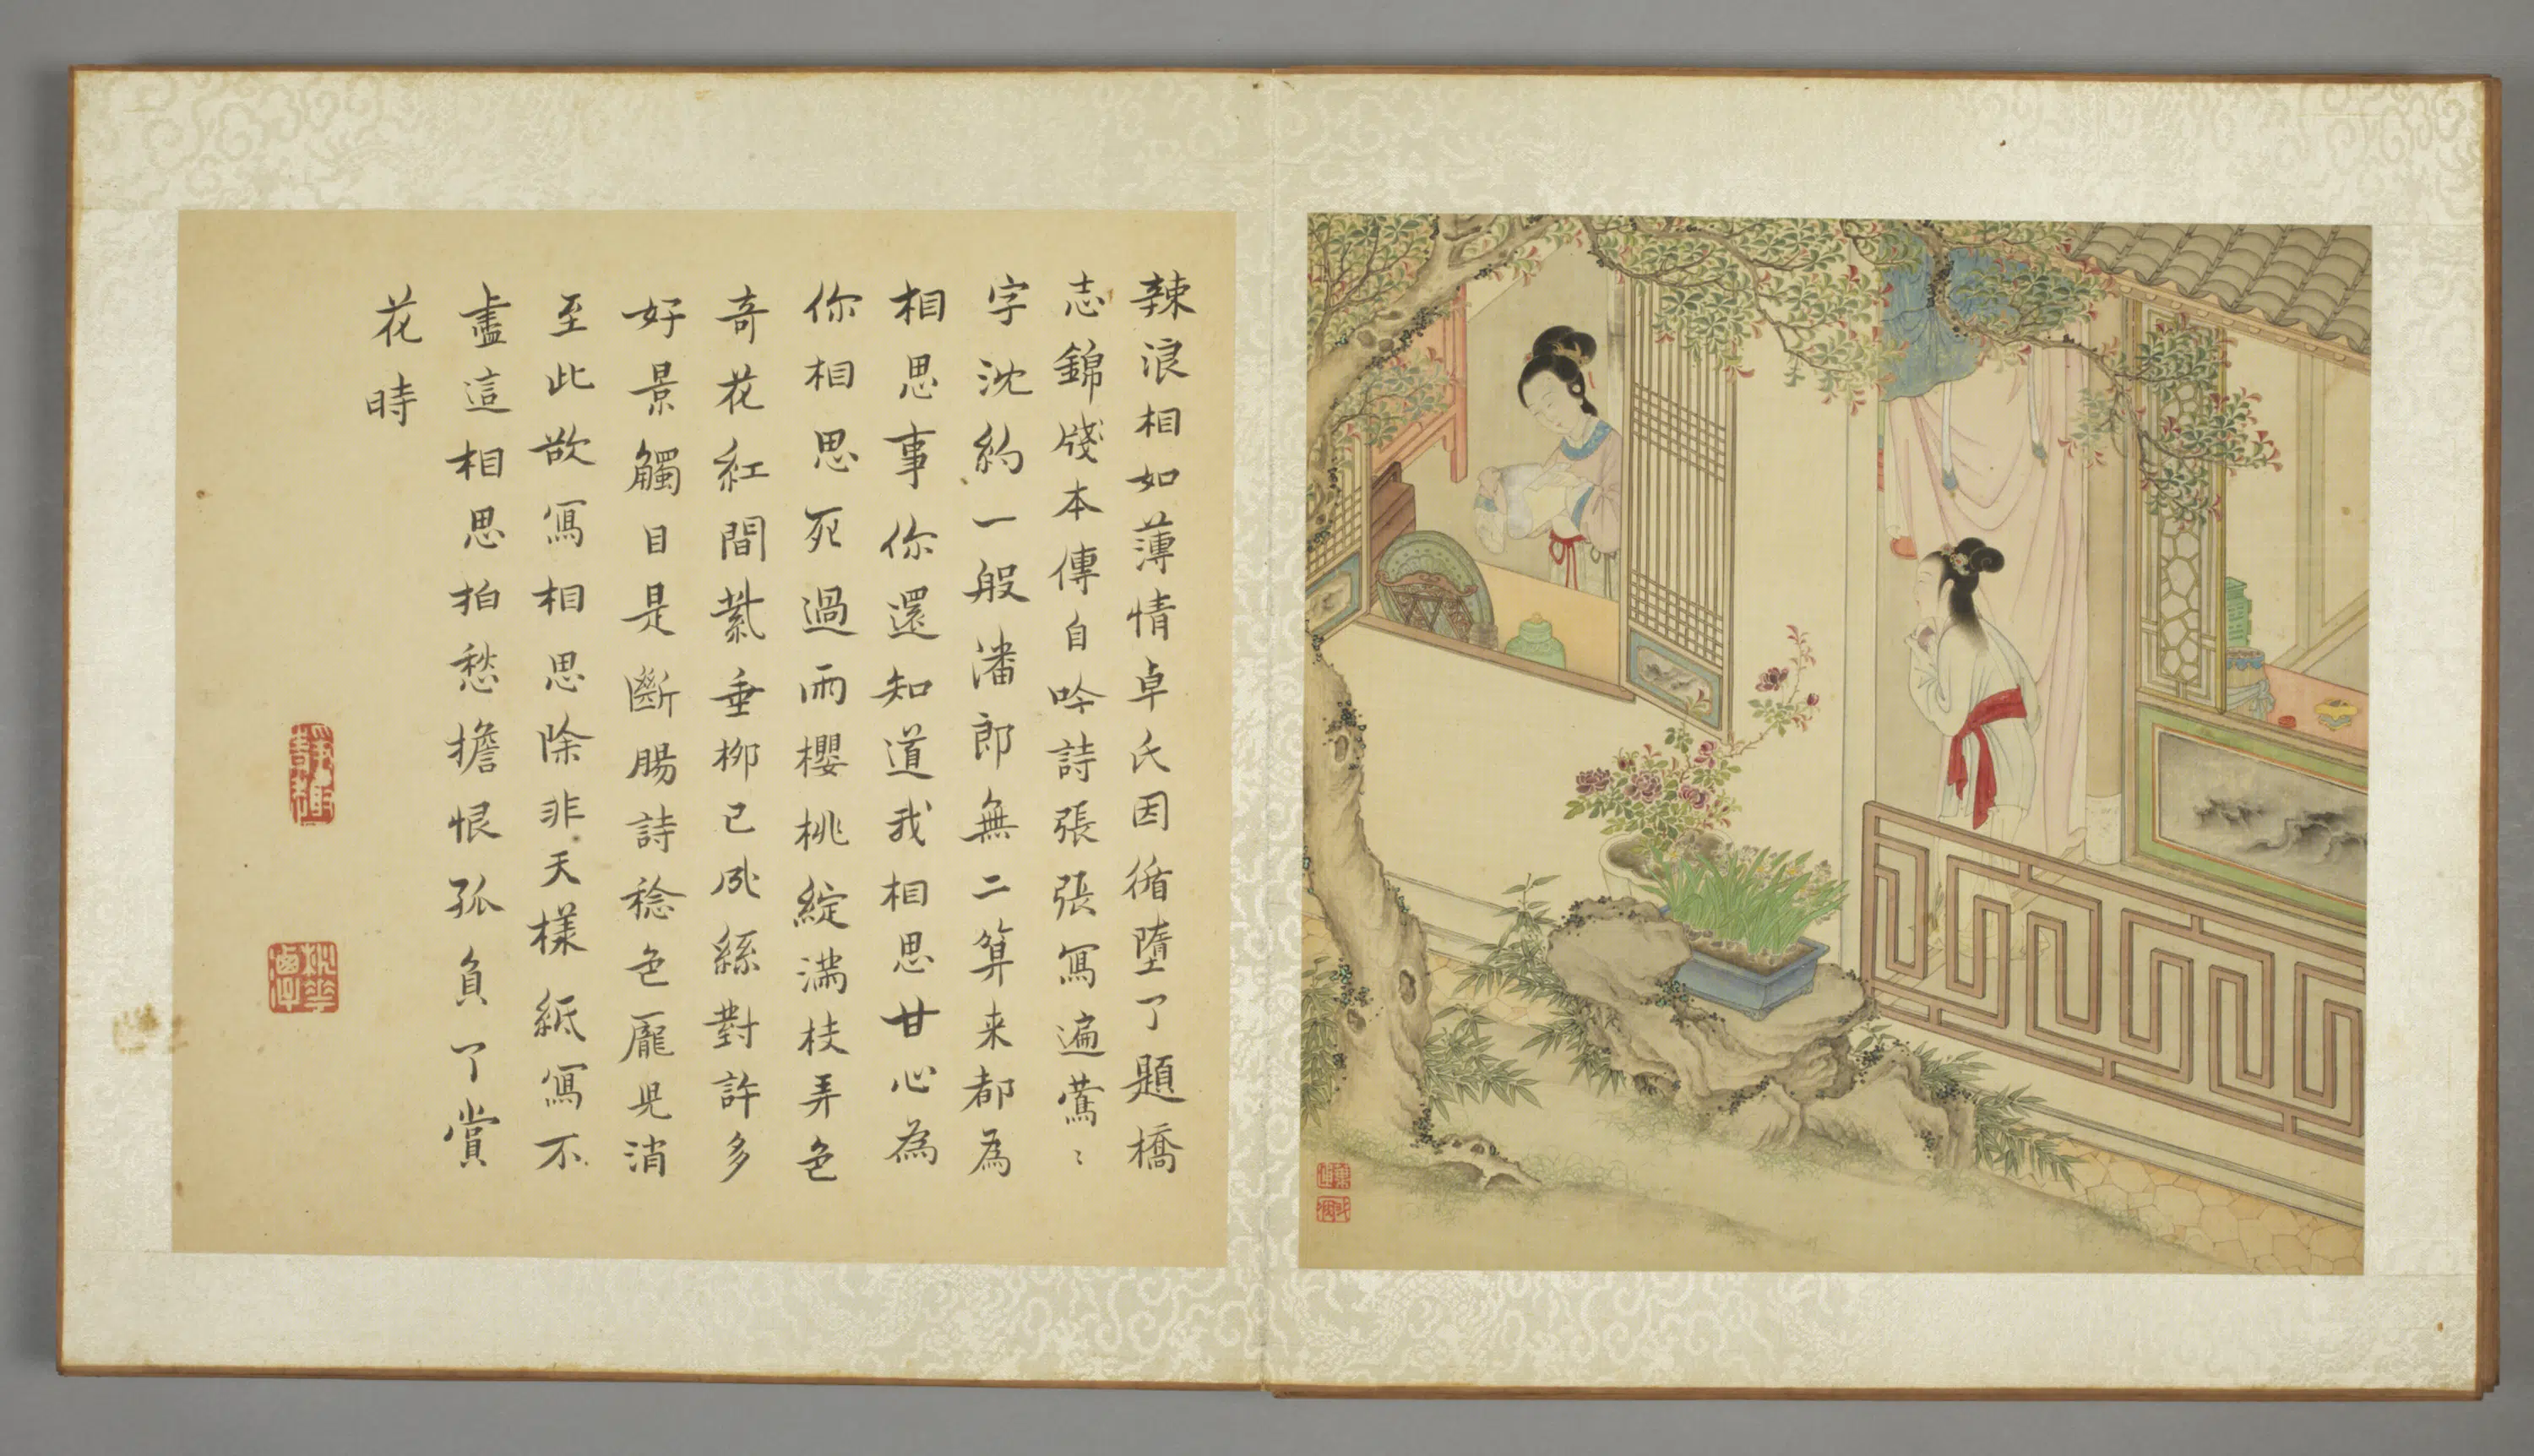 辣浪相如薄情卓氏因循墮了題橋
志錦牋本傳自吟詩張張寫遍鶯〻
字沈約一般潘郎無二算来都為
相思事你還知道我相思甘心為
你相思死過雨櫻桃綻滿枝弄色
奇花紅間紫垂柳已成絲對許多
好景觸目是斷腸詩稔色龐兒消
至此欲寫相思除非天樣紙寫不
盡這相思拍愁擔恨孤負了賞
花時